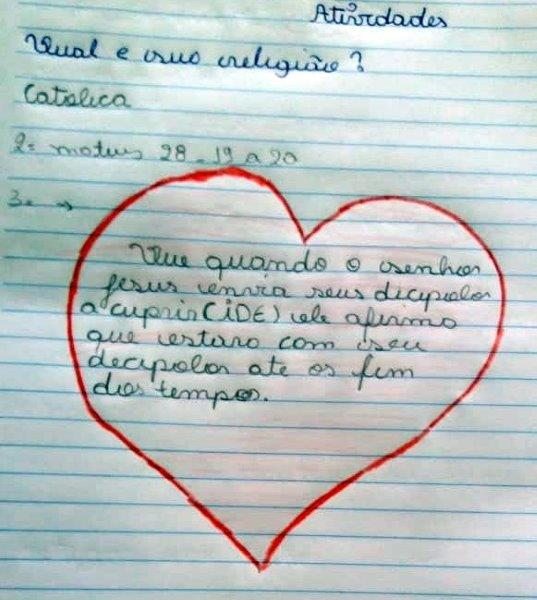 Atividades
Qual e sua religião?
Catolica
2= mateus 28 - 19 a 20
3= →
Que quando o senhor
Jesus envia seus dicipolos
a cuprir (IDE) ele afirmo
que estara com seu
decipolos ate os fim
dos tempos.